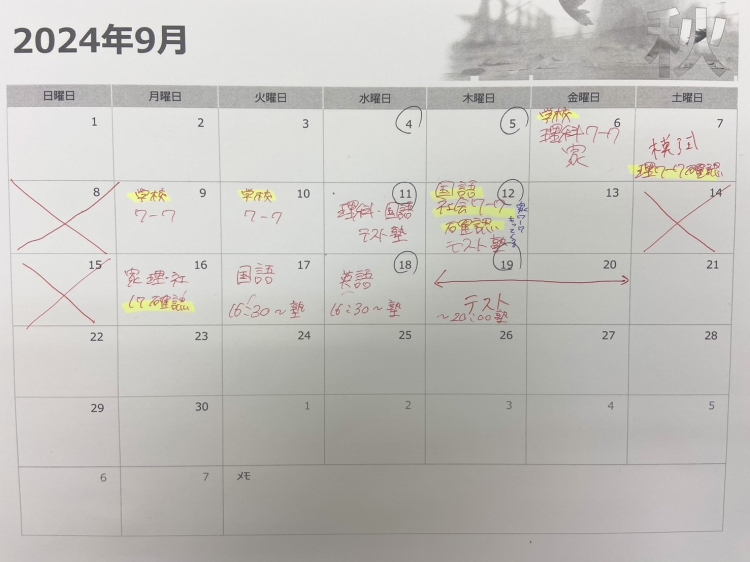 2024年9月
秋
日曜日 月曜日 火曜日 水曜日 木曜日 金曜日 土曜日
1 2 3 4 5 6 7
学校
理科ワーク
家
模試
理ワーク確認
8 9 10 11 12 13 14
学校
ワーク
学校
ワーク
理科・国語
テスト塾
国語
社会ワーク
確認
テスト塾
15 16 17 18 19 20 21
家 理・社
確認
国語
16:30〜塾
英語
16:30〜塾
テスト
〜20:00塾
22 23 24 25 26 27 28
29 30 1 2 3 4 5
6 7 メモ